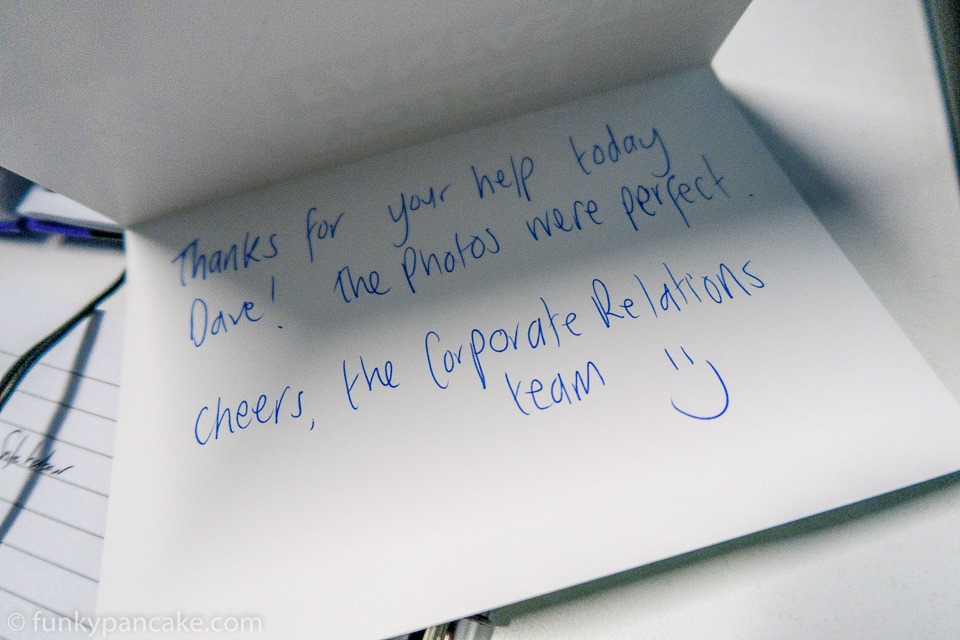 Thanks for your help today
Dave! The Photos were perfect.
cheers, the Corporate Relations
team
© funkypancake.com